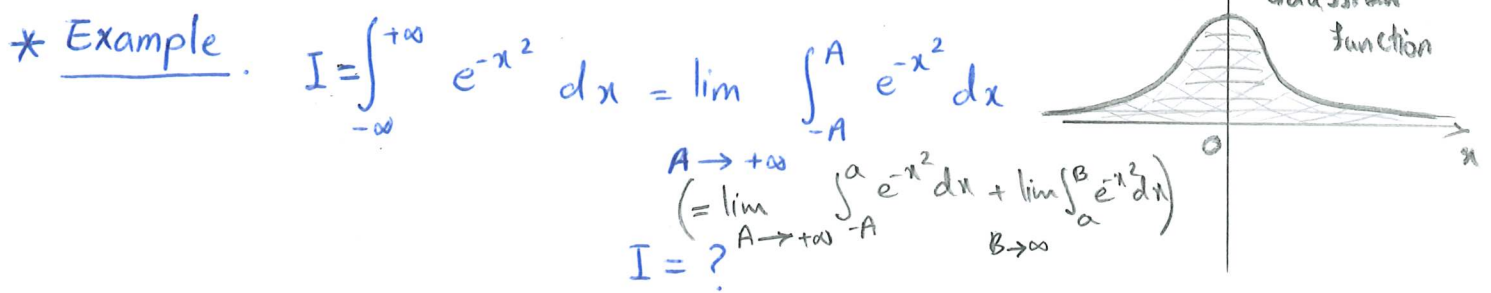 * Example. I = ∫_{-∞}^{+∞} e^{-x^2} dx = lim_{A → +∞} ∫_{-A}^{A} e^{-x^2} dx
(= lim_{A → +∞} ∫_{-A}^{a} e^{-x^2} dx + lim_{B → ∞} ∫_{a}^{B} e^{-x^2} dx)
I = ?
function
0
x